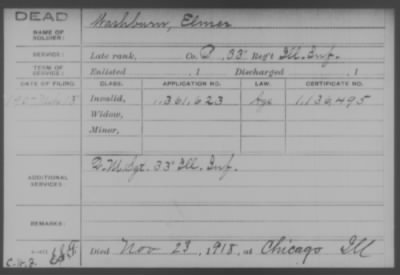 DEAD
NAME OF SOLDIER: Washburn, Elmer
SERVICE: Late rank, Co. D, 33 Reg't Ill. Inf.
TERM OF SERVICE: Enlisted , 1 Discharged , 1
DATE OF FILING. CLASS. APPLICATION NO. LAW. CERTIFICATE NO.
1907 15 Invalid, 1,361,623 Age 1,136,495
Widow,
Minor,
ADDITIONAL SERVICES: Q.M. Sgt. 33" Ill. Inf.
REMARKS:
Died Nov 23, 1918, at Chicago Ill